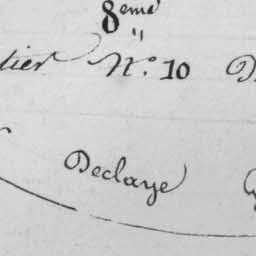 8eme
tier No. 10
Declaye